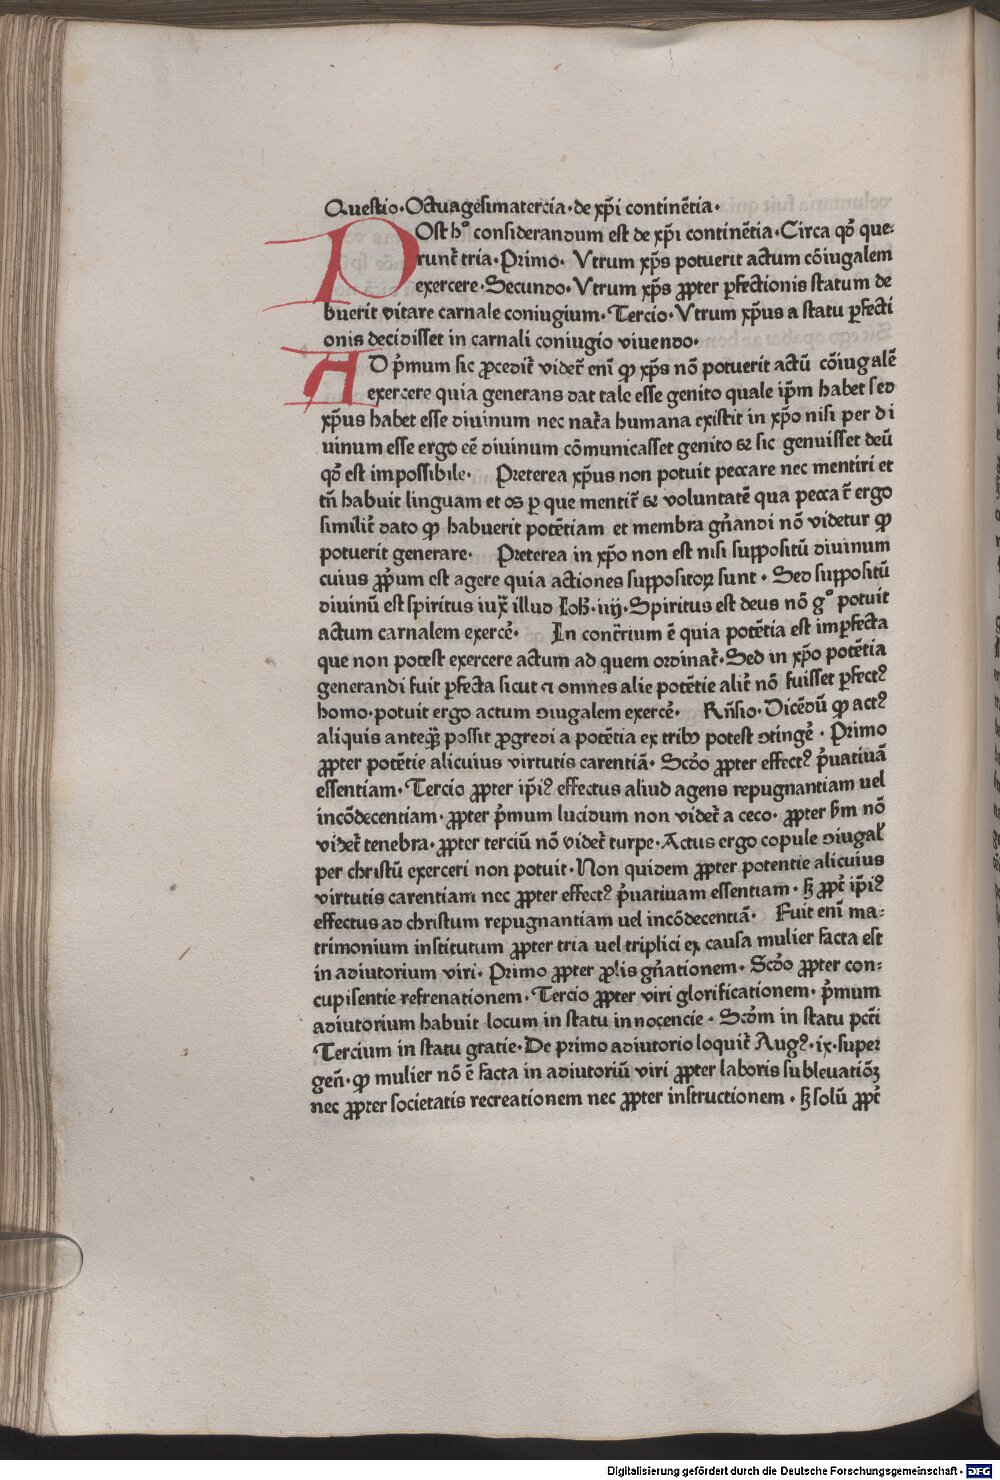 Questio·Octuagesimatercia·de xp̄i continētia·
POst hͦ considerandum est de xp̄i continētia·Circa qd̕ que⸗
runt̕ tria·Primo· Vtrum xp̄s potuerit actum cōiugalem
exercere·Secundo·Vtrum xp̄s ꝓpter ꝑfectionis statum de
buerit vitare carnale coniugium·Tercio·Vtrum xp̄us a statu ꝑfecti
onis decidisset in carnali coniugio viuendo·
AD p̄mum sic ꝓcedit̕ videt̕ enī ꝙ xp̄s nō potuerit actū cōiugalē
exercere quia generans dat tale esse genito quale ip̄m habet sed
xp̄us habet esse diuinum nec nat̕a humana existit in xp̄o nisi per di
uinum esse ergo eē diuinum cōmunicasset genito ⁊ sic genuisset deū
qd̕ est impossibile· Preterea xp̄us non potuit peccare nec mentiri et
tn̄ habuit linguam et os ꝑ que mentit̕ ⁊ voluntatē qua pecca t̕ ergo
similit̕ dato ꝙ habuerit potētiam et membra gn̄andi nō videtur ꝙ
potuerit generare· Preterea in xp̄o non est nisi suppositū diuinum
cuius ꝓp̄um est agere quia actiones suppositoꝝ sunt · Sed suppositū
diuinū est spiritus iux̄ illud Ioh̄·iiij·Spiritus est deus nō gͦ potuit
actum carnalem exerce̕· In cont̕rium ē quia potētia est imꝑfecta
que non potest exercere actum ad quem ordinat̕·Sed in xp̄o potētia
generandi fuit ꝑfecta sicut ⁊ omnes alie potētie alit̕ nō fuisset ꝑfectꝰ
homo·potuit ergo actum ↄiugalem exerce̕· Rn̄sio·Dicēdū ꝙ actꝰ
aliquis anteqꝫ possit ꝓgredi a potētia ex tribꝫ potest ↄtinge̕ · Primo
ꝓpter potētie alicuius virtutis carentiā· Scd̕o ꝓpter effectꝰ p̄uatiuā
essentiam·Tercio ꝓpter ip̄iꝰ effectus aliud agens repugnantiam uel
incōdecentiam·ꝓpter p̄mum lucidum non videt̕ a ceco· ꝓpter b̄m nō
videt̕ tenebra·ꝓpter terciū nō videt̕ turpe·Actus ergo copule ↄiugal̕
per christū exerceri non potuit·Non quidem ꝓpter potentie alicuius
virtutis carentiam nec ꝓpter effectꝰ p̄uatiuam essentiam·ꝫ ꝓpt̕ ip̄iꝰ
effectus ad christum repugnantiam uel incōdecentiā· Fuit enī ma⸗
trimonium institutum ꝓpter tria uel triplici ex causa mulier facta est
in adiutorium viri· Primo ꝓpter ꝓlis gn̄ationem· Scd̕o ꝓpter con⸗
cupisentie refrenationem·Tercio ꝓpter viri glorificationem· p̄mum
adiutorium habuit locum in statu innocencie · Scd̕m in statu pct̄i
Tercium in statu gratie·De primo adiutorio loquit̕ Augꝰ·ix·super
gen̄·ꝙ mulier nō ē facta in adiutoriū viri ꝓpter laboris subleuatiōꝫ
nec ꝓpter societatis recreationem nec ꝓpter instructionem · ꝫ solū ꝓpt̕
Digitalisierung gefördert durch die Deutsche Forschungsgemeinschaft - DFG